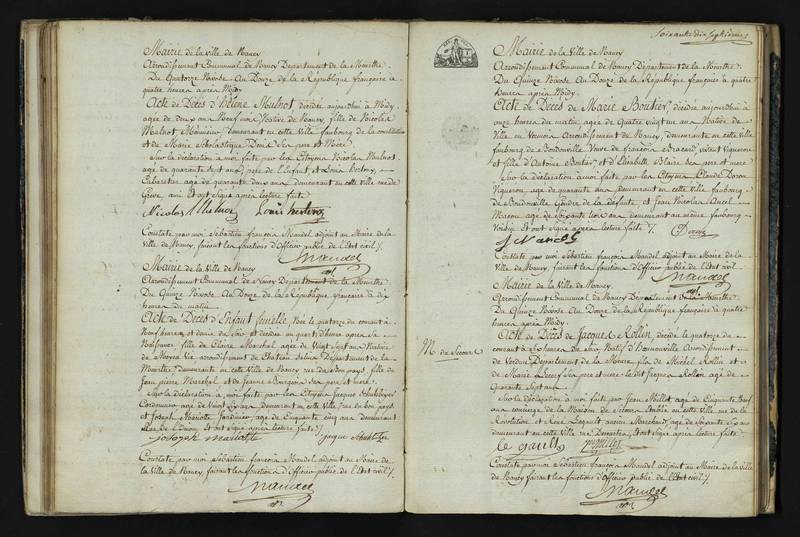 Mairie de la Ville de Nancy
Arrondissement Communal de Nancy Departement de la Meurthe
Du Quatorze Nivose An Douze de la République française à
quatre heures après Midy
Acte de Décès d'hélène Mulnot décédée aujourd'hui à Midy
agée de deux ans Neuf mois Native de Nancy, fille de Nicolas
Mulnot Menuisier demeurant en cette Ville faubourg de la constitution
et de Marie Scholastique ses père et Mère
Sur la déclaration à moi faite par les Citoyens Nicolas Mulnot
agé de quarante sept ans, père de l'Enfant, et Louis herlevy,
Cabaretier agé de quarante deux ans demeurant en cette Ville rue de
Grève ont Signé après lecture faite
Nicolas Mulnot Louis
Constaté par moi Sébastien françois Mandel adjoint au Maire de la
Ville de Nancy, faisant les fonctions d'Officier public de l'Etat civil
Mandel
adt
Mairie de la Ville de Nancy
Arrondissement Communal de Nancy Departement de la Meurthe
Du Quinze Nivose An Douze de la République française à dix
heures du matin
Acte de Décès d'Enfant femelle, Née le quatorze du courant à
Neuf heures et demie du soir et décédée un quart d'heure après sa
Naissance fille de Claire Marchal agée de Vingt Sept ans Native
de Moyen Vic arrondissement de Chateau Salins Departement de la
Meurthe demeurant en cette Ville de Nancy rue du bon pays fille de
Jean pierre Marchal et de Jeanne Bourgeois ses père et mere.
Sur la déclaration à moi faite par les Citoyens Jacques
Cordonnier agé de Vingt Six ans demeurant en cette Ville rue du bon pays
et Joseph Jardinier agé de Cinquante cinq ans demeurant
Rue de l'Union, et ont Signé après lecture faite
joseph jacques
Constaté par moi Sébastien françois Mandel adjoint au Maire de
la Ville de Nancy, faisant les fonctions d'Officier public de l'Etat civil
Mandel
adt
Soixante dix septième
Mairie de la Ville de Nancy
Arrondissement Communal de Nancy Département de la Meurthe
Du Quinze Nivose An Douze de la République française à quatre
heures après Midy
Acte de Décès de Marie Boutier, décédée aujourd'hui à
onze heures du matin agée de Quatre vingt un ans Native de
Ville en Vermois Arrondissement de Nancy, demeurante en cette Ville
faubourg de Boudonville Veuve de françois Bracard, vivant Vigneron
et fille d'Antoine Boutier, et d'Elisabeth Blaise ses père et mere
Sur la déclaration à moi faite par les Citoyens Claude
Vigneron agé de quarante ans demeurant en cette Ville faubourg
de Boudonville Gendre de la défunte, et Jean Nicolas Ancel
Macon agé de soixante trois ans demeurant au même faubourg
Voisin et ont Signé après lecture faite
J N ancel
Constaté par moi Sébastien françois Mandel adjoint au Maire de la
Ville de Nancy, faisant les fonctions d'Officier public de l'Etat civil
Mandel
adt
Mairie de la Ville de Nancy
Arrondissement Communal de Nancy Departement de la Meurthe
Du Quinze Nivose An Douze de la République française à quatre
heures après Midy
Mon de Secours
Acte de Décès de Jacques Rollin, décédé le quatorze du
courant à six heures du Soir Natif d' Arrondissement
de Verdun Departement de la Meuse, fils de Michel Rollin et
de Marie ses père et mere: le dit Jacques Rollin agé de
Quarante Sept ans
Sur la déclaration à moi faite par Jean Millot agé de Cinquante Neuf
ans concierge de la Maison de Secours Etablie en cette Ville rue de la
Révolution et René Legault ancien Marchand, agé de soixante dix ans
demeurant en cette Ville et ont Signé après lecture faite
le gault Millot
Constaté par moi Sébastien françois Mandel adjoint au Maire de la Ville
de Nancy faisant les fonctions d'Officier public de l'Etat civil
Mandel
adt